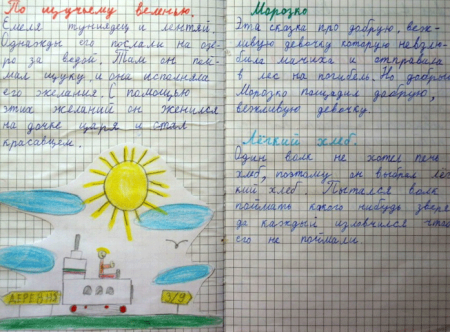 По щучьему велению.
Емеля туниядец и лентяй.
Однажды его послали на озе-
ро за водой. Там он пой-
мал щуку, и она исполняла
его желания. С помощью
этих желаний он женился
на дочке царя и стал
красавцем.
ДЕРЕВНЯ
3/9
Морозко
Эта сказка про добрую, веж-
ливую девочку которую невзлю-
била мачиха и отправила
в лес на погибель. Но добрый
Морозко пощадил добрую,
вежливую девочку.
Лёгкий хлеб.
Один волк не хотел печь
хлеб, поэтому он выбрал лёг-
кий хлеб. Пытался волк
поймать какого нибудь зверя
да каждый изловчился чтоб
его не поймали